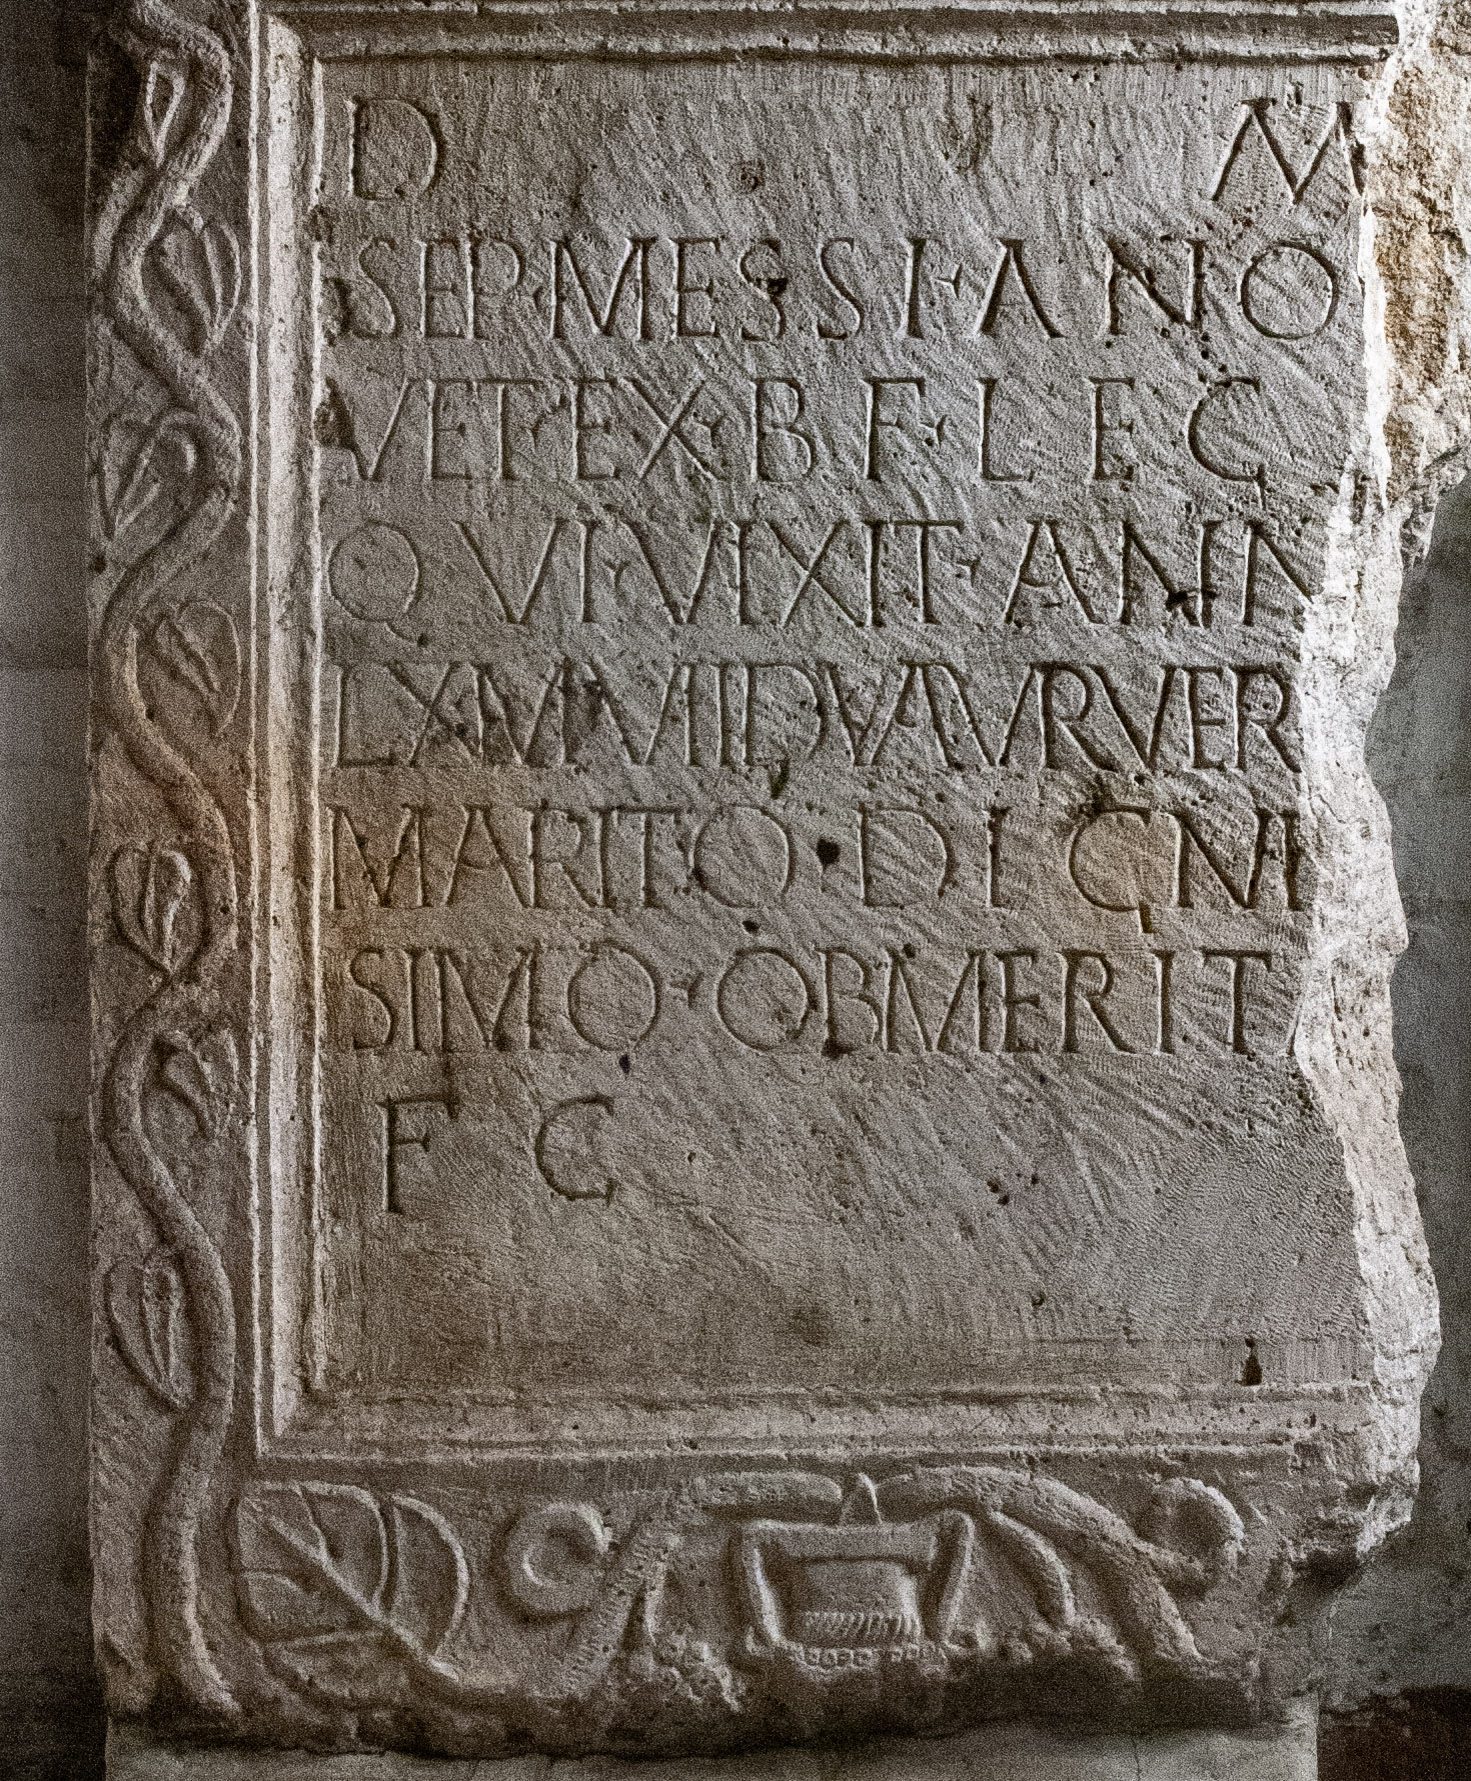 D M
SEP·MESSI·ANO
VET·EX·BF·LEG
QVI·VIXIT·ANN
LXVMVIIDVAVRVER
MARITO·DIGNI
SIMO·OBMERIT
F C